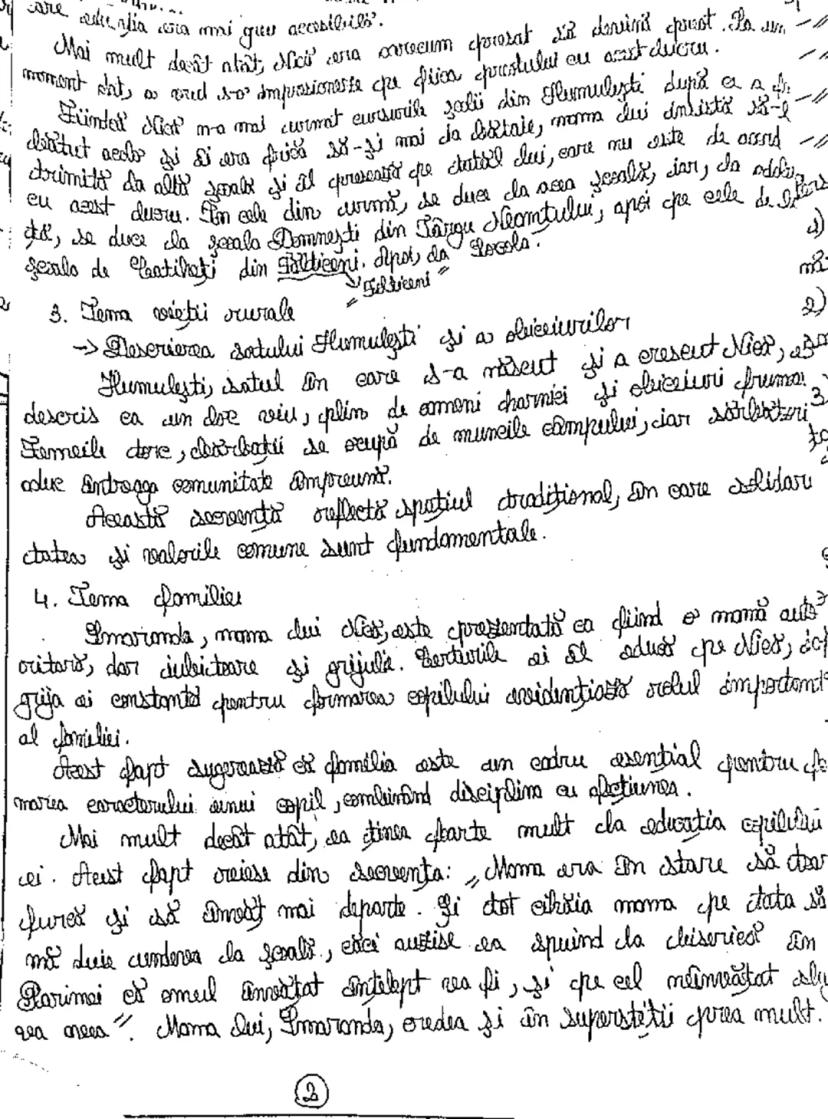 care educația era mai greu accesibilă.
Mai mult decât atât, Nică era oarecum forțat să devină preot. La un
moment dat, a vrut s-o impresioneze pe fiica preotului cu acest lucru.
Fiindcă Nică n-a mai urmat cursurile școlii din Humulești după ce a fo
bătut acolo și îi era frică să-și mai ia bătaie, mama lui insistă să-l
trimită la altă școală și îl presează pe tatăl lui, care nu este de acord
cu acest lucru. În cele din urmă, se duce la acea școală, iar, la adoles
ță, se duce la școala Domnești din Târgu Neamțului, apoi pe cele de la
școala de Catiheți din Fălticeni. Apoi, la Socola.
"Fălticeni"
3. Tema vieții rurale
-> Descrierea satului Humulești și a obiceiurilor
Humulești, satul în care s-a născut și a crescut Nică, este
descris ca un loc viu, plin de oameni harnici și obiceiuri frumoa
Femeile torc, bărbații se ocupă de muncile câmpului, iar sărbători
aduc întreaga comunitate împreună.
Această secvență reflectă spațiul tradițional, în care solidari
tatea și valorile comune sunt fundamentale.
4. Tema familiei
Smaranda, mama lui Nică, este prezentată ca fiind o mamă auto
oritară, dar iubitoare și grijulie. Certurile ei îl aduce pe Nică, iar
grija ei constantă pentru formarea copilului evidențiază rolul important
al familiei.
Acest fapt sugerează că familia este un cadru esențial pentru fo
marea caracterului unui copil, combinând disciplina cu afecțiunea.
Mai mult decât atât, ea ținea foarte mult la educația copilului
ei. Acest fapt reiese din secvența: „Mama era în stare să toar
furcă și să învăț mai departe. Și tot cihăia mama pe tata să
mă duie undeva la școală, căci auzise ea spuind la biserică în
Parimei că omul învățat înțelept va fi, și pe cel neînvățat slu
va avea". Mama lui, Smaranda, credea și în superstiții prea mult.
2